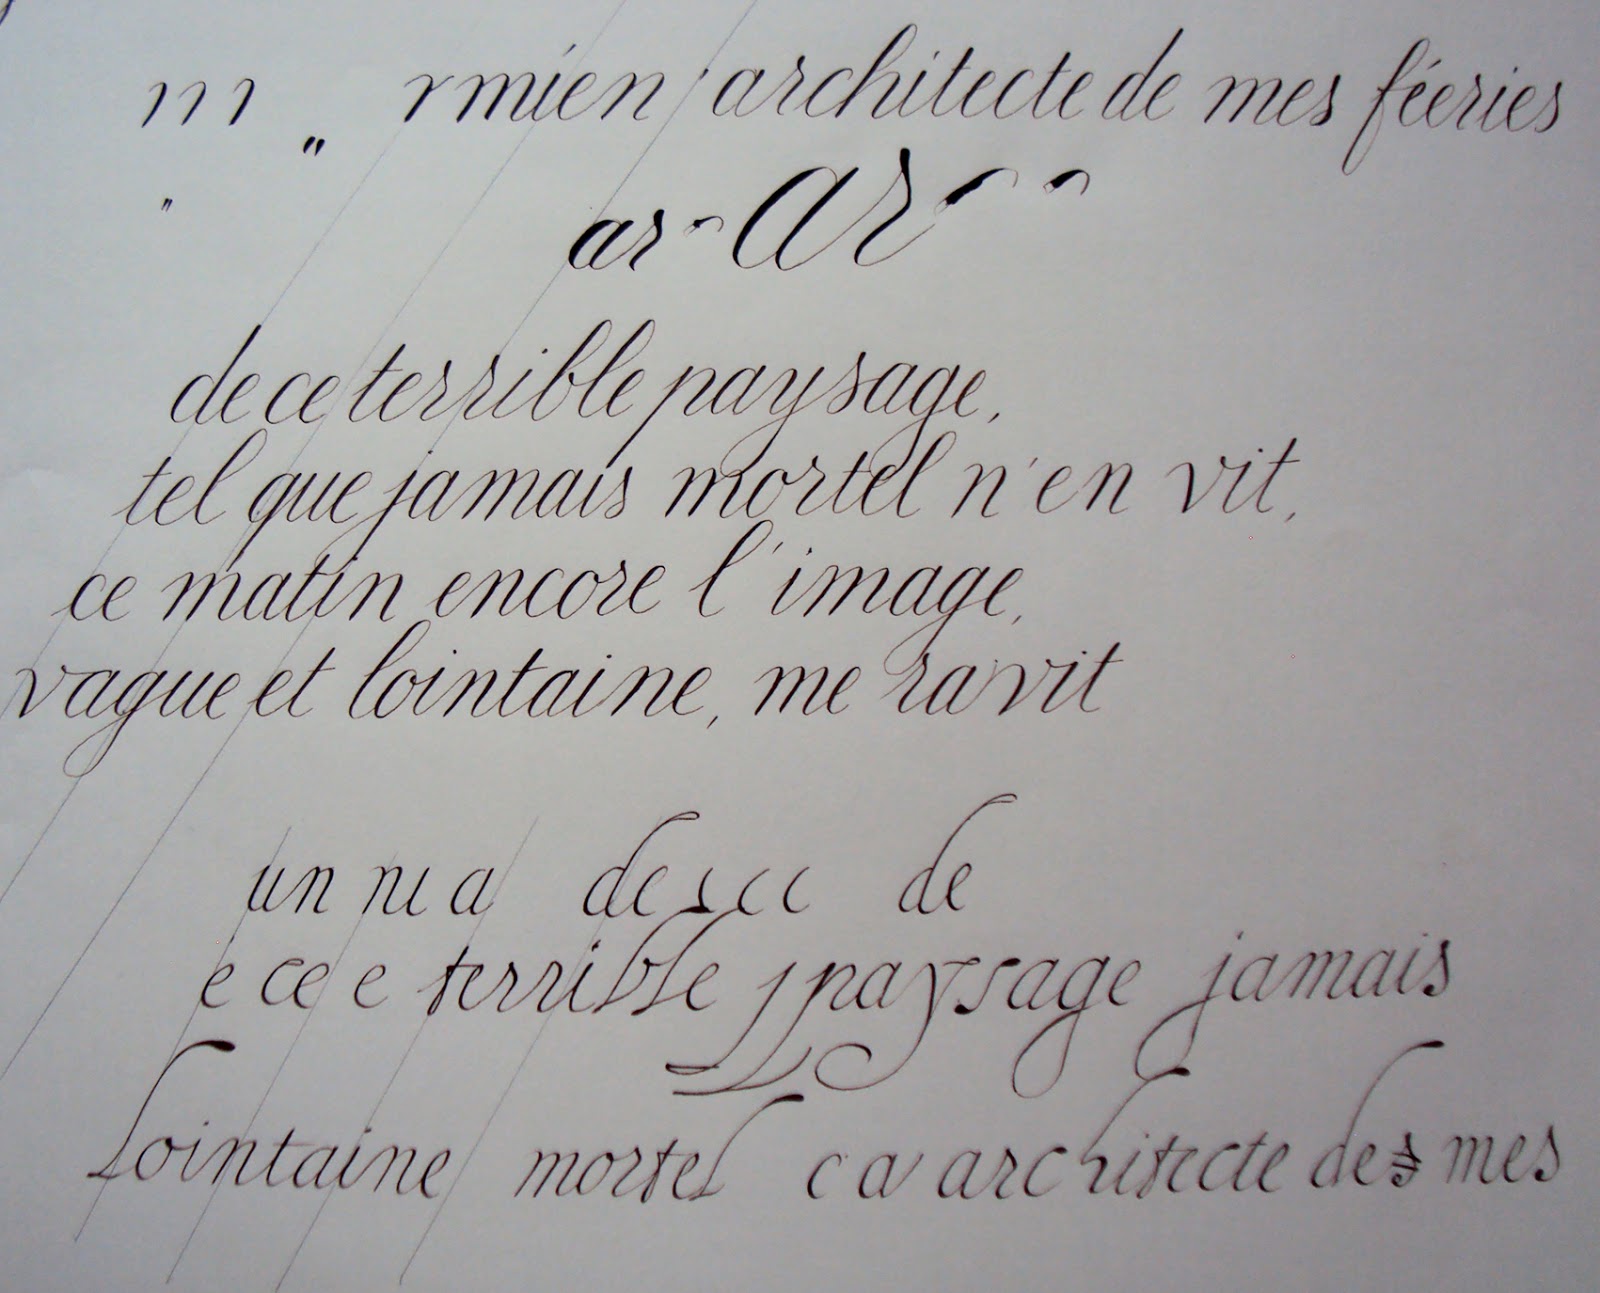 m „ rmien architecte de mes féeries
" ar ar
de ce terrible paysage,
tel que jamais mortel n'en vit,
ce matin encore l'image,
vague et lointaine, me ravit
un nı a de s c c de
e ce e terrible j paysage jamais
lointaine mortel c a architecte des mes